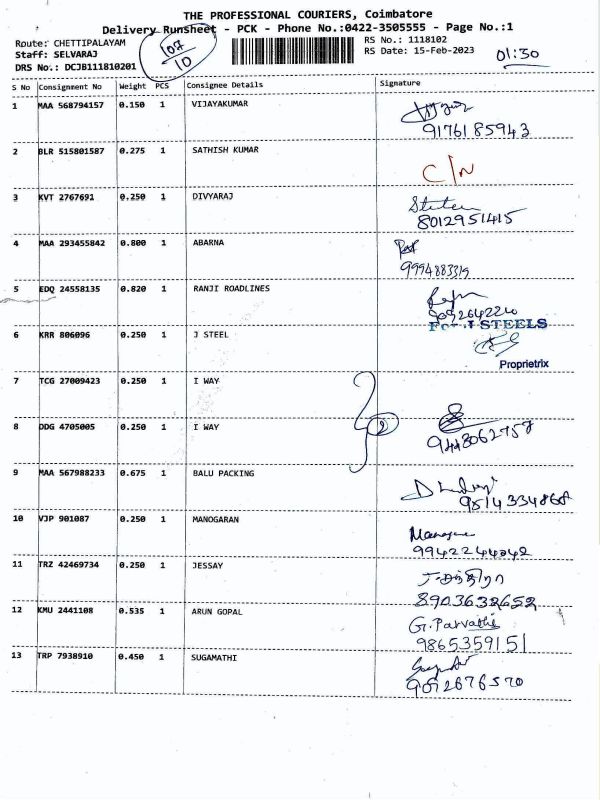 THE PROFESSIONAL COURIERS, Coimbatore
Delivery Runsheet - PCK - Phone No.:0422-3505555 - Page No.:1
Route: CHETTIPALAYAM
Staff: SELVARAJ
DRS No.: DCJB111810201
107
10
RS No.: 1118102
RS Date: 15-Feb-2023
01:30
S No Consignment No Weight PCS Consignee Details Signature
1 MAA 568794157 0.150 1 VIJAYAKUMAR
9176185943
2 BLR 515801587 0.275 1 SATHISH KUMAR
C/N
3 KVT 2767691 0.250 1 DIVYARAJ
8012951415
4 MAA 293455842 0.800 1 ABARNA
9994883319
5 EDQ 24558135 0.820 1 RANJI ROADLINES
9092642220
For J STEELS
6 KRR 806096 0.250 1 J STEEL
Proprietrix
7 TCG 27009423 0.250 1 I WAY
8 DDG 4705005 0.250 1 I WAY
2
9443062758
9 MAA 567988233 0.675 1 BALU PACKING
9514334868
10 VJP 901087 0.250 1 MANOGARAN
9942244342
11 TRZ 42469734 0.250 1 JESSAY
8903632652
12 KMU 2441108 0.535 1 ARUN GOPAL
G. Parvathi
9865359151
13 TRP 7938910 0.450 1 SUGAMATHI
9092676570